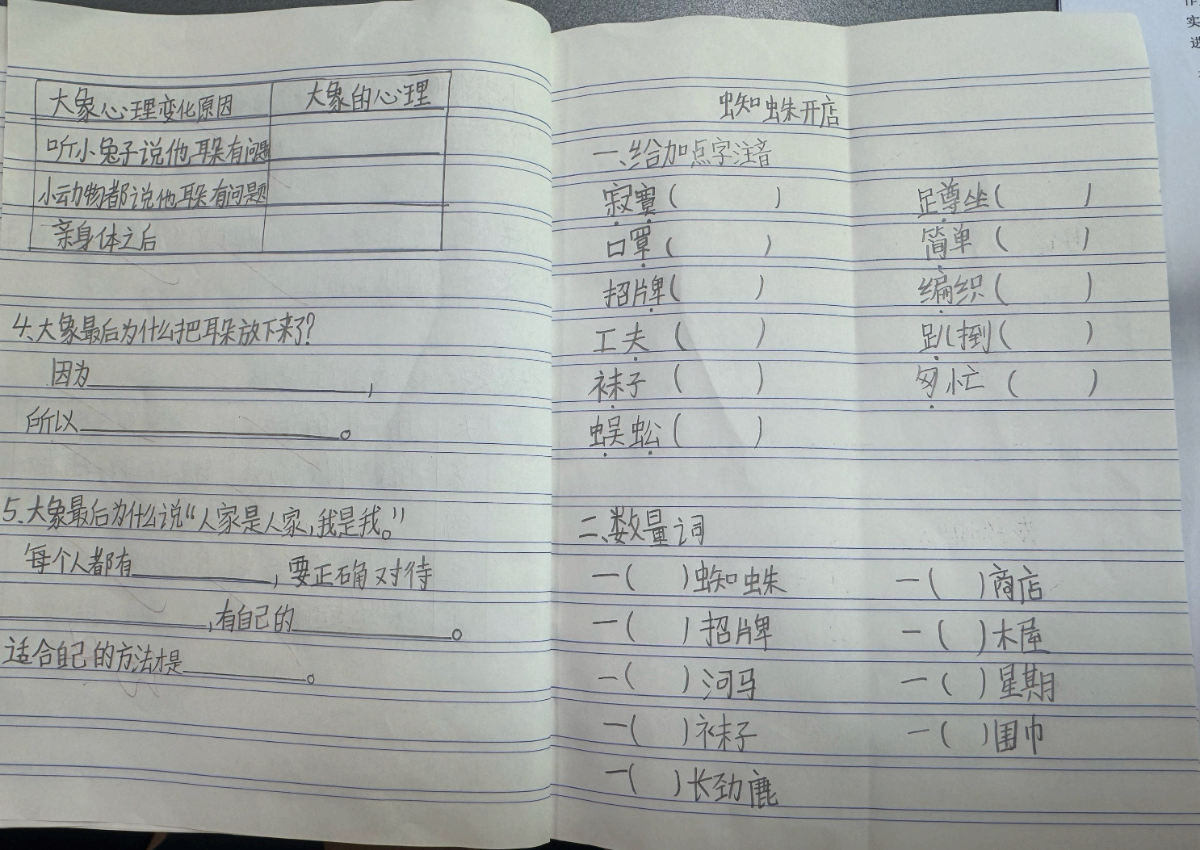 大象心理变化原因 大象的心理
听小兔子说他耳朵有问题
小动物都说他耳朵有问题
亲身体之后
4.大象最后为什么把耳朵放下来了?
因为____________,
所以____________。
5.大象最后为什么说“人家是人家,我是我。”
每个人都有________,要正确对待
________,有自己的________。
适合自己的方法才是________。
蜘蛛开店
一、给加点字注音
寂寞( ) 足尊坐( )
口罩( ) 简单( )
招牌( ) 编织( )
工夫( ) 趴捯( )
袜子( ) 匆忙( )
蜈蚣( )
二、数量词
一( )蜘蛛 一( )商店
一( )招牌 一( )木屋
一( )河马 一( )星期
一( )袜子 一( )围巾
一( )长劲鹿